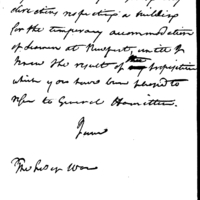 directions respecting a building
for the temporary accommodation
of
at Newport, until I
know the result of the propositions
which you have been pleased to
refer to General Hamilton.
The Sec. of War